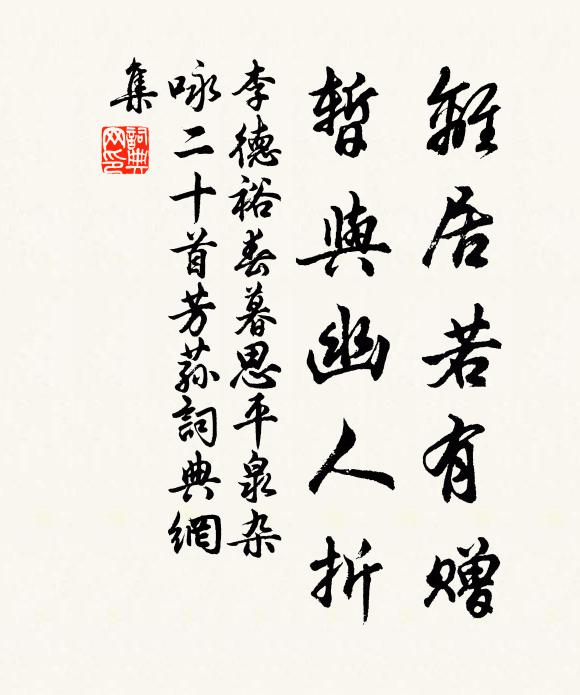 離居若有赠
暫與幽人折
李德裕春暮思平泉杂
咏二十首芳荪詞典網
集
詞典网印